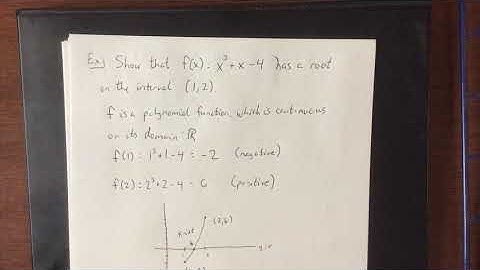 Ex) Show that f(x) = x³ + x - 4 has a root
on the interval (1,2)
f is a polynomial function, which is continuous
on its domain: ℝ
f(1) = 1³ + 1 - 4 = -2 (negative)
f(2) = 2³ + 2 - 4 = 6 (positive)
(2,6)
root